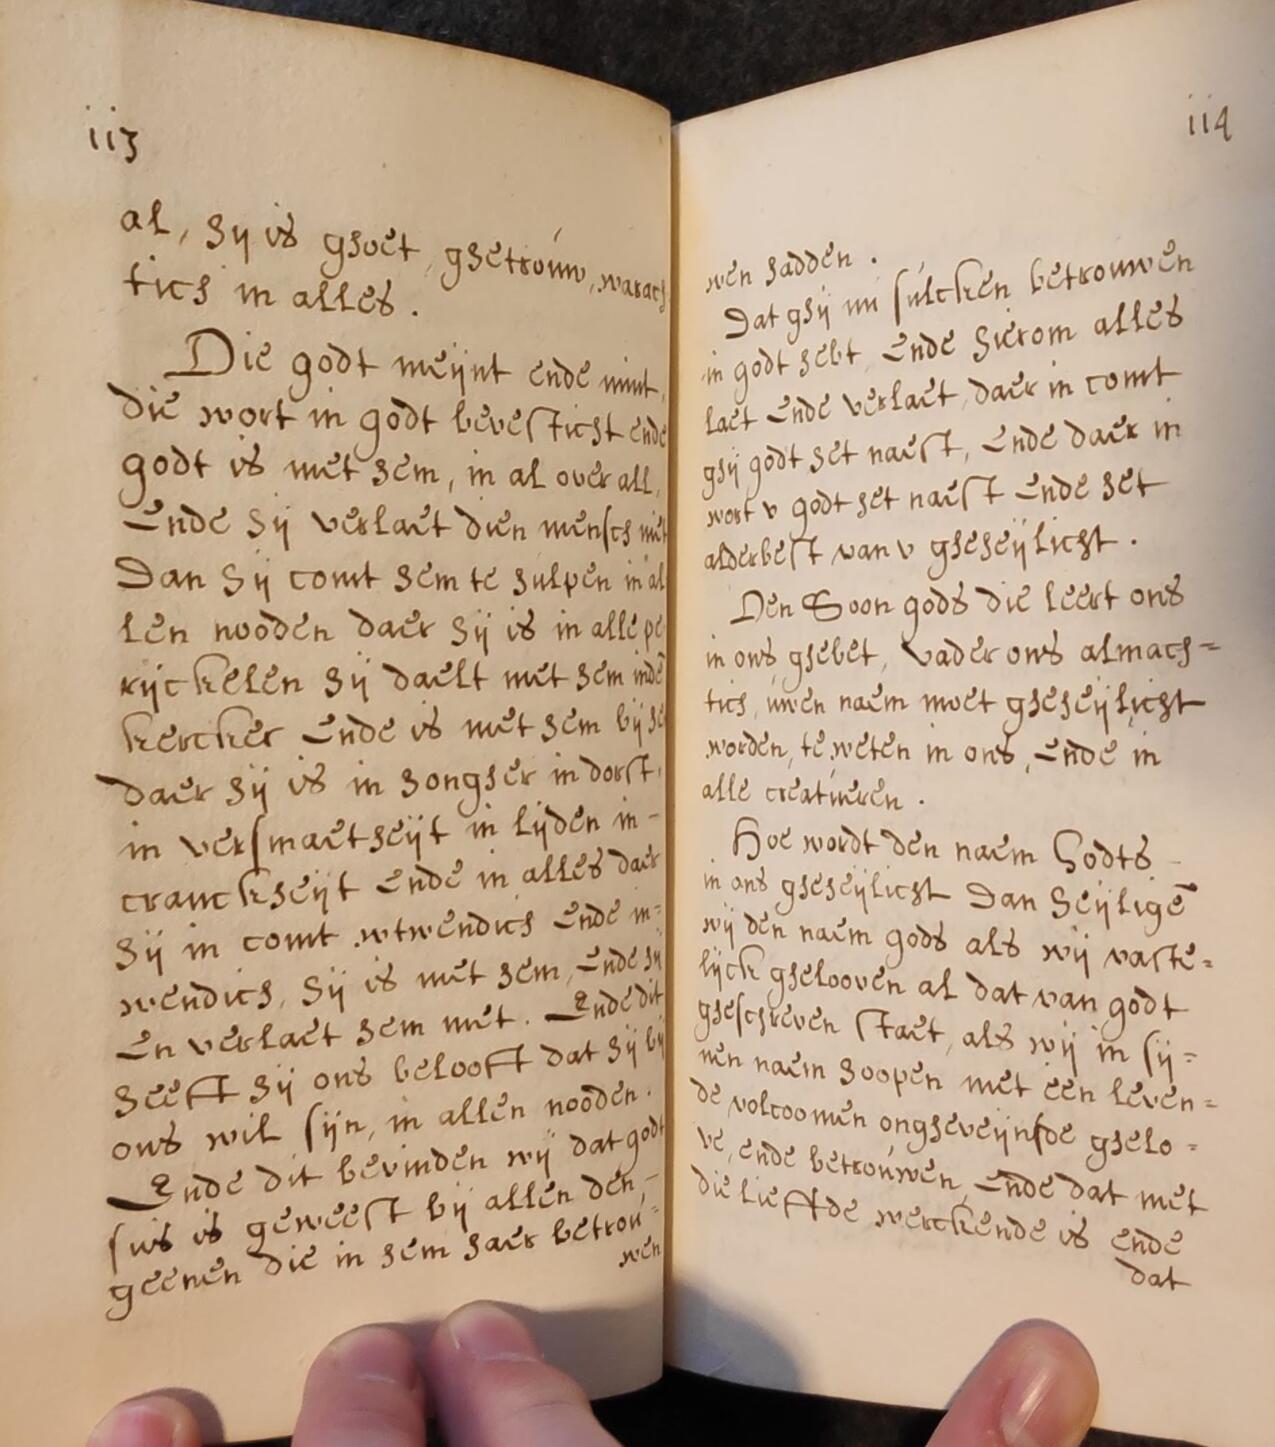 113
al, hij is ghoet, ghetrouw, warach
tich in alles.
Die godt meijnt ende mint,
die wort in godt bevesticht ende
godt is met hem, in al over all,
Ende hij verlaet dien mensch niet
Dan hij comt hem te hulpen in al
len nooden daer hij is in alle pe
rijckelen hij daelt met hem indē
kercker Ende is met hem bij he
daer hij is in hongher in dorst,
in versmaetheijt in lijden in-
cranckheijt Ende in alles daer
hij in comt wtwendich Ende in=
wendich, hij is met hem, Ende hij
En verlaet hem niet. Ende dit
heeft hij ons belooft dat hij bij
ons wil sijn, in allen nooden.
Ende dit bevinden wij dat godt
sus is geweest bij allen den,-
geenen die in hem haer betrou=
wen
114
wen hadden.
Dat ghij nu sulcken betrouwen
in godt hebt, Ende hierom alles
laet Ende verlaet, daer in comt
ghij godt het naest, Ende daer in
wort v godt het naest Ende het
alderbest van v gheheijlicht.
Den Soon gods die leert ons
in ons ghebet, Vader ons almach=
tich, uwen naem moet gheheijlicht
worden, te weten in ons, Ende in
alle creatueren.
Hoe wordt den naem Godts
in ons gheheijlicht Dan heijligē
wij den naem gods als wij vaste=
lijck ghelooven al dat van godt
gheschreven staet, als wij in sij=
nen naem hoopen met een leven=
de volcoomen ongheveijnsde ghelo=
ve, ende betrouwen, Ende dat met
die lieffde werckende is ende
dat